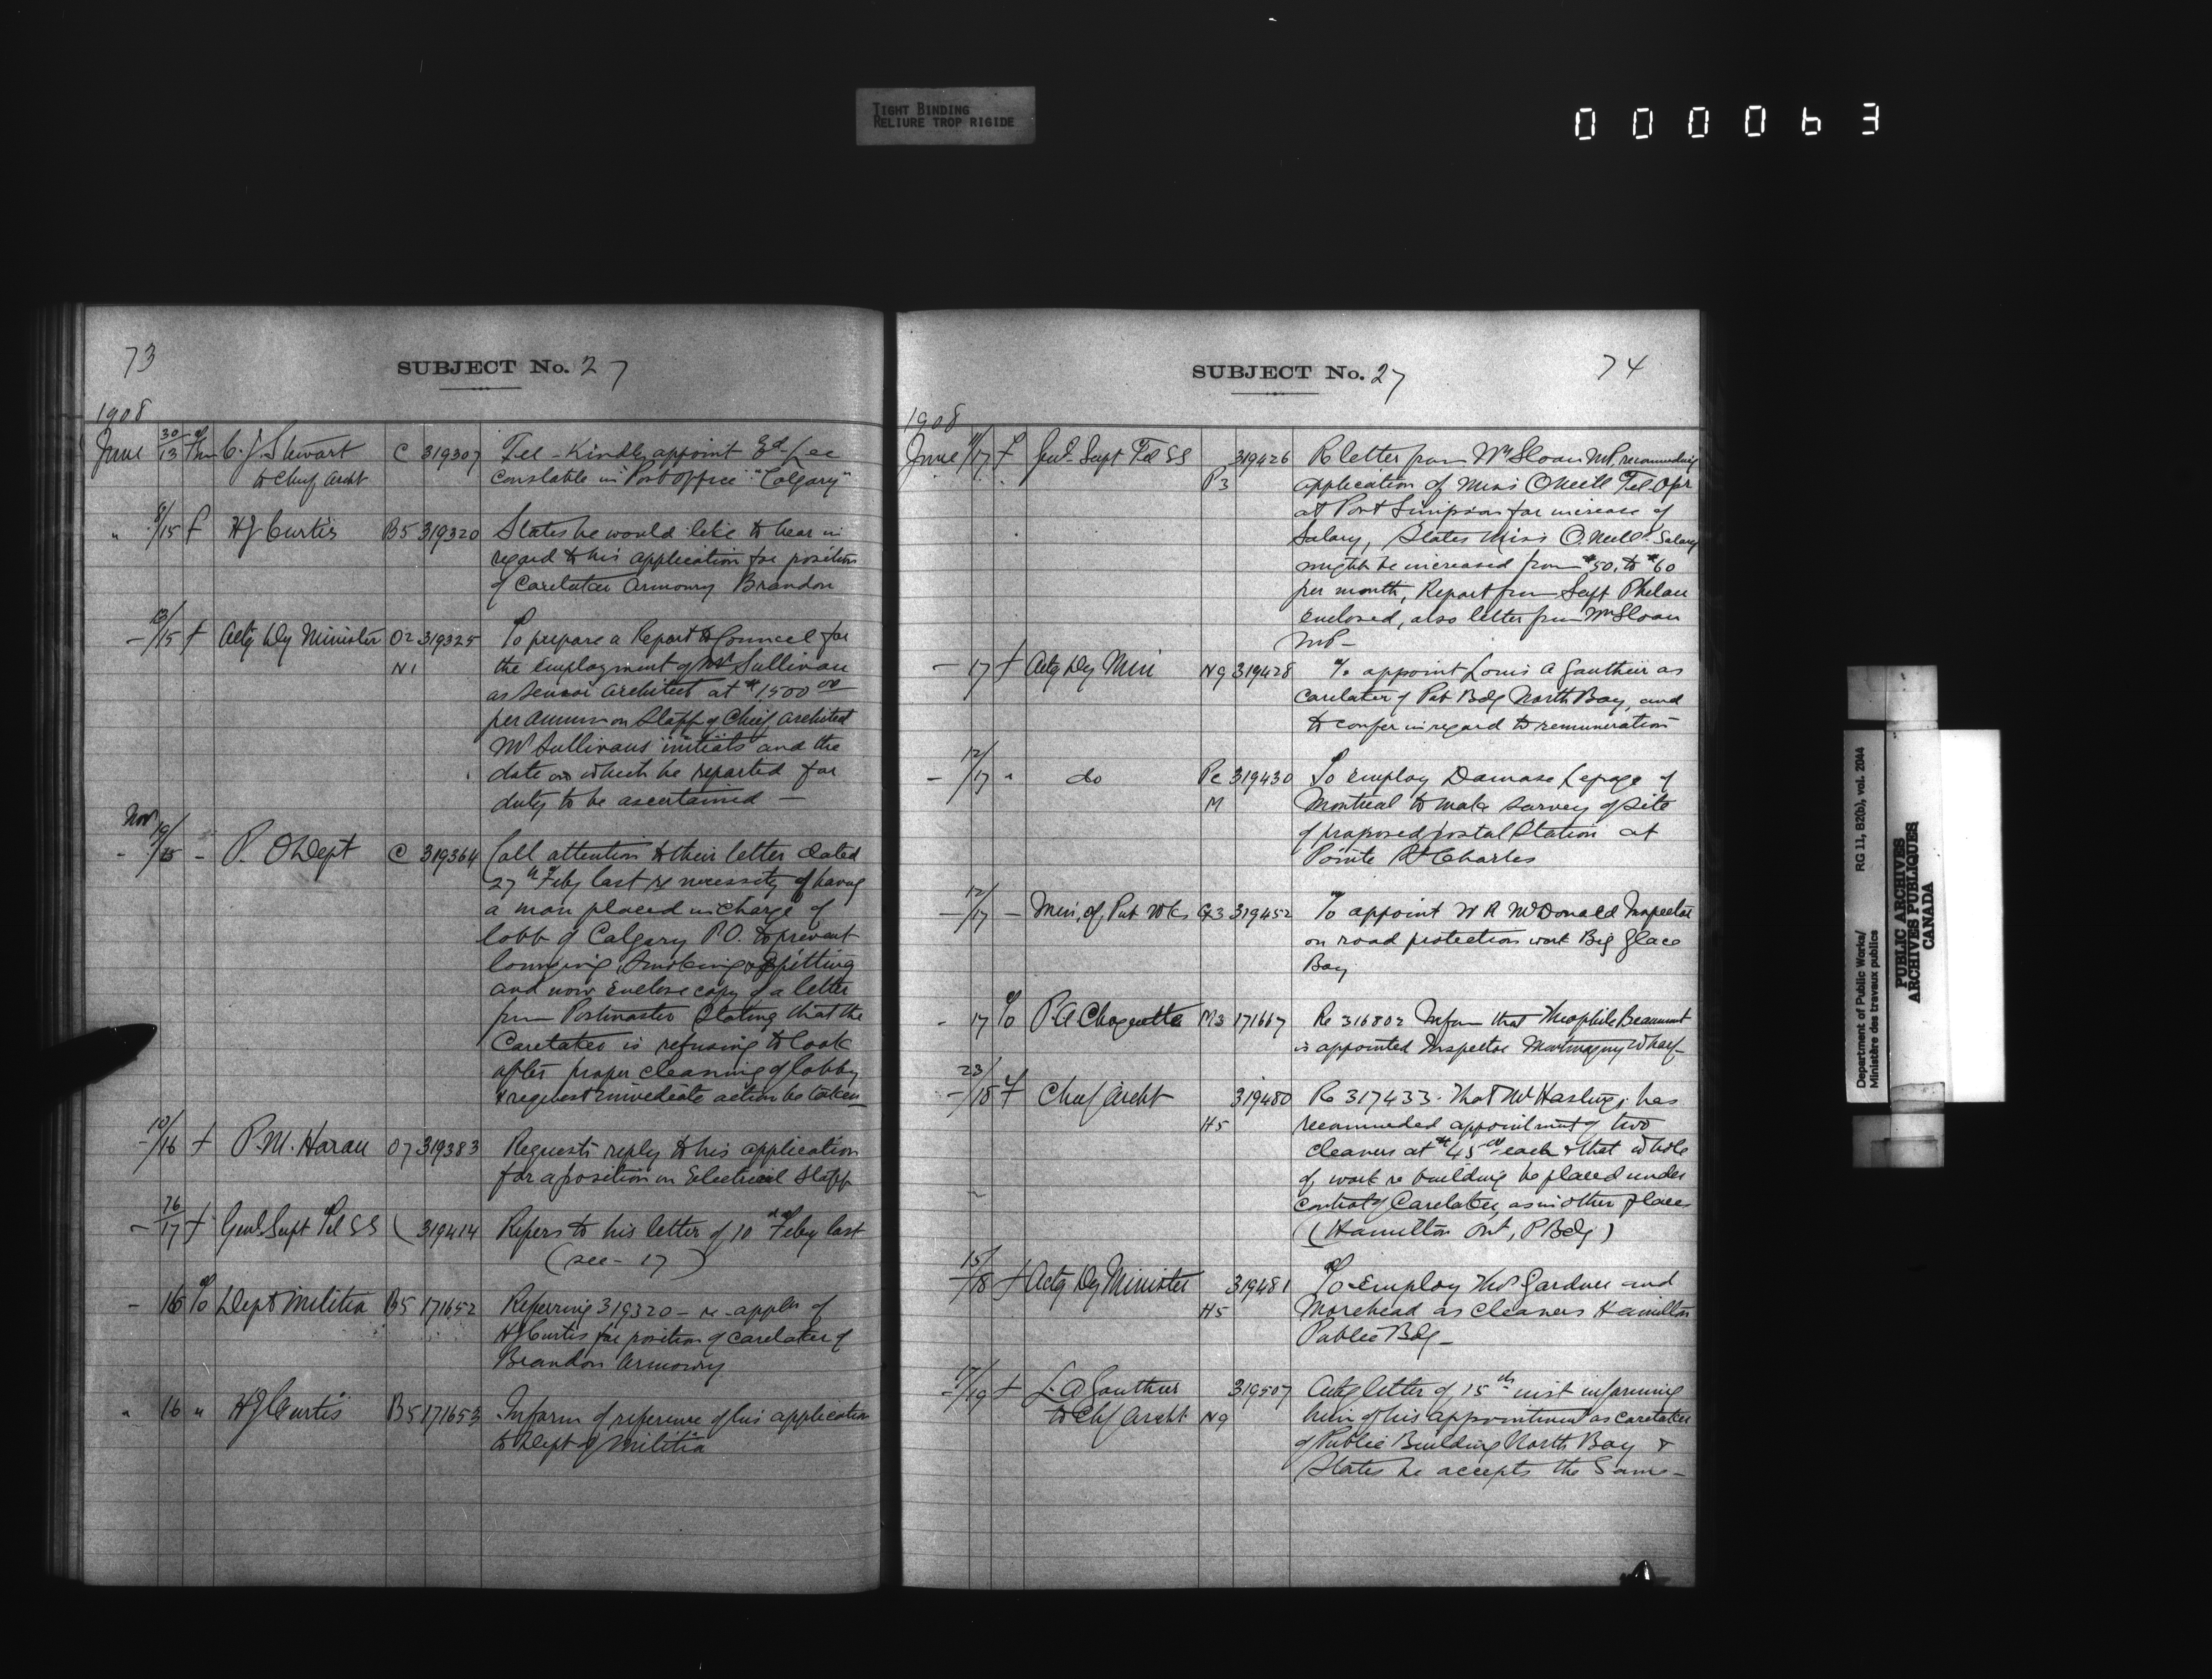 TIGHT BINDING
RELIURE TROP RIGIDE
000063
73
SUBJECT No. 27
1908
June 30/13 C. J. Stewart C 319307 Tel - Kindly appoint Ed. Lee
to Chief Archt constable in "Post Office" "Calgary"
" 8/15 f H J Curtis B5 319320 States he would like to hear in
regard to his application for position
of Caretaker Armoury Brandon
- 13/15 f Actg Dy Minister O2 319325 To prepare a Report to Council for
N1 the employment of Mr Sullivan
as Senior Architect at $1500 00
per annum on Staff of Chief Architect
Mr Sullivans initials and the
date on which he reported for
duty to be ascertained —
Nov 19/
" /15 - P. O Dept C 319364 Call attention to their letter dated
27th Feby last re necessity of having
a man placed in charge of
lobb of Calgary P.O. to prevent
lounging, smoking & spitting
and now enclose copy of a letter
from Postmaster stating that the
Caretaker is refusing to look
after proper cleaning of lobby
& request immediate action be taken
10/16 f P. M. Haran O7 319383 Requests reply to his application
for a position on Electrical Staff
- 76/17 f Genl Supt Tel SS ( 319414 Refers to his letter of 10 Feby last
(see - 17 )
- 16 To Dept Militia B5 171652 Referring 319320 - re-appln of
H J Curtis for position of caretaker of
Brandon Armoury
" 16 " H J Curtis B5 171653 Inform of reference of his application
to Dept of Militia
SUBJECT No. 27
74
1908
June 11/17 f Genl Supt Tel SS 319426 Re letter from Wm Sloan MP, recommending
P3 application of Miss O'Neill Tel. Opr
at Port Simpson for increase of
Salary, States Miss O.Neill's Salary
might be increased from $50. to $60
per month, Report from Supt Phelan
enclosed, also letter from Wm Sloan
MP -
- 17 f Actg Dy Min N9 319428 To appoint Louis A Gauthier as
caretaker of Pub Bdg North Bay, and
to confer in regard to remuneration
- 12/17 " do Pc 319430 To employ Damase Lepage of
M Montreal to make survey of site
of proposed postal Station at
Pointe St Charles
- 12/17 - Min. of Pub Wks G3 319452 To appoint W R McDonald Inspector
on road protection work Big Glace
Bay
- 17 To P. A Choquette M3 171667 Re 316802 Inform that Theophile Beaumont
is appointed Inspector Montmagny Wharf
23/
- /18 f Chief Archt 319480 Re 317433. That Mr Hastings has
H5 recommended appointment of two
cleaners at $45 00 each & that whole
of work re building be placed under
control of Caretaker, as in other places
(Hamilton Ont, P Bdg)
15/
- /18 f Actg Dy Minister 319481 To employ Thos Gardner and
H5 Morehead as cleaners Hamilton
Public Bdg -
17/19 f L. A Gauthier 319507 letter of 15th inst informing
to Chf Archt N9 him of his appointment as caretaker
of Public Building North Bay &
States he accepts the Same -
Department of Public Works/
Ministère des travaux publics
RG 11, B2(b), vol. 2044
PUBLIC ARCHIVES
ARCHIVES PUBLIQUES
CANADA